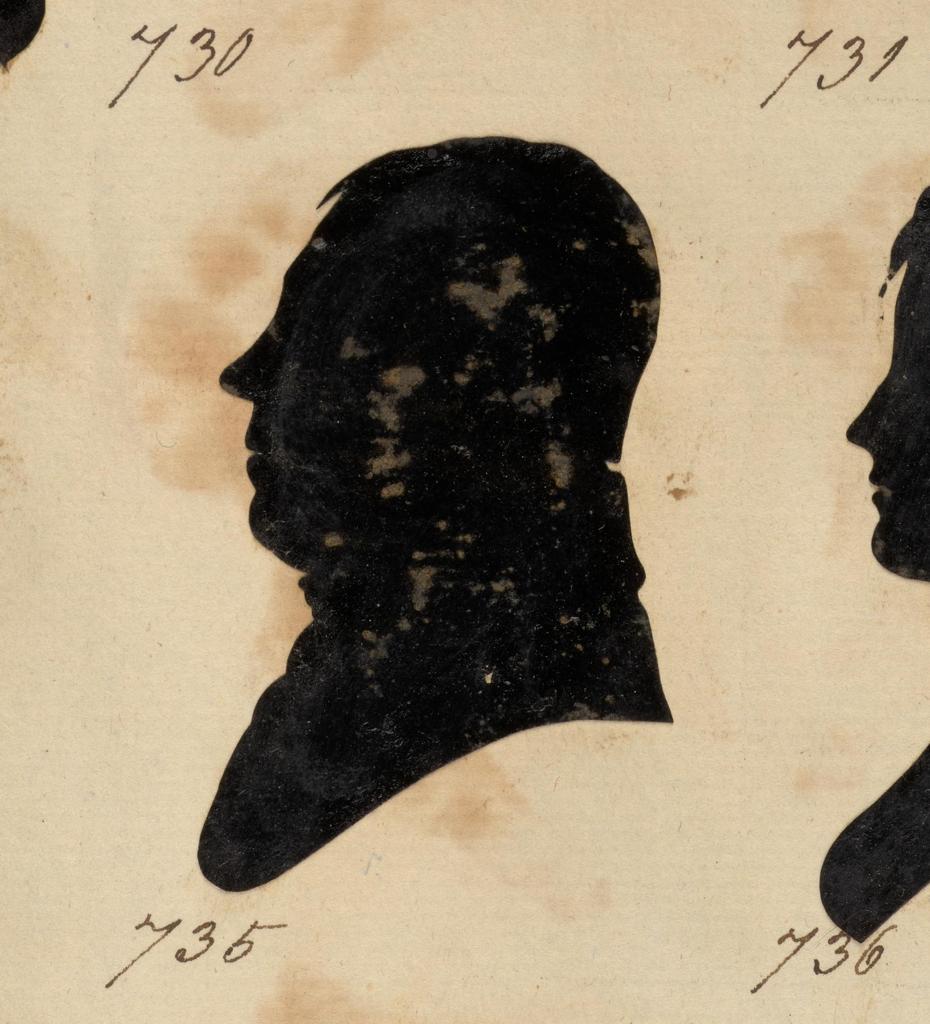 730 731
735 736